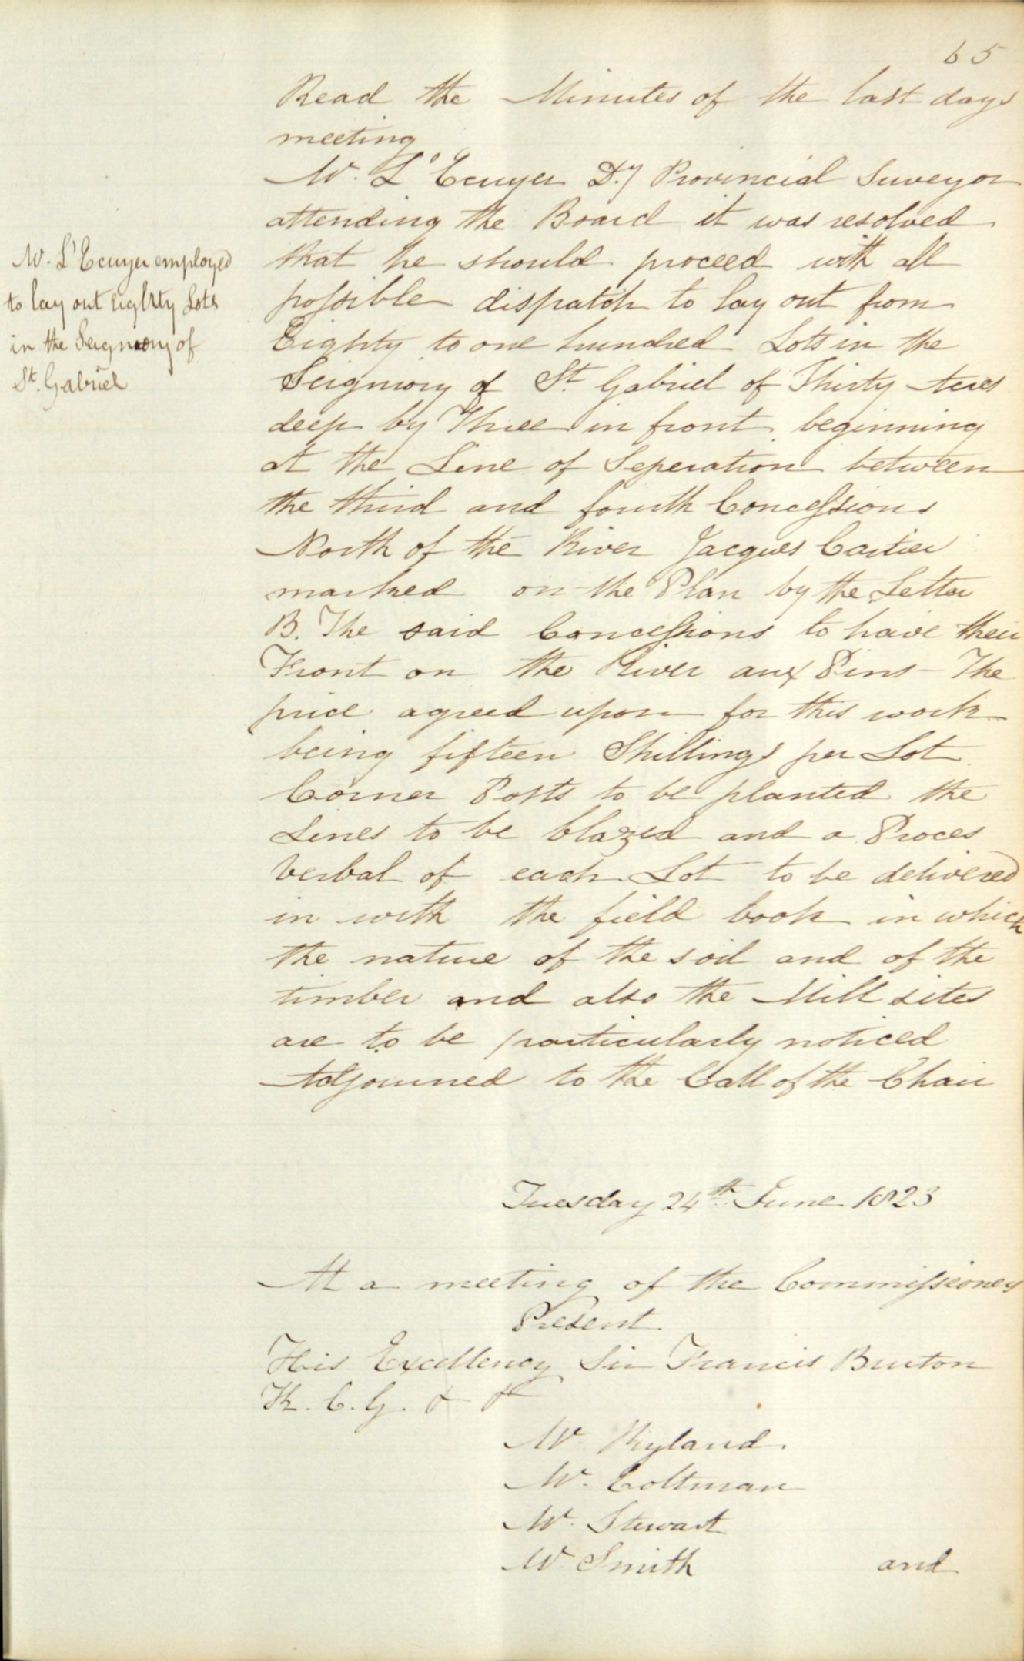 65
Read the Minutes of the last days
meeting
Mr. L'Ecuyer Dy Provincial Surveyor
attending the Board it was resolved
that he should proceed with all
possible dispatch to lay out from
Eighty to one hundred Lots in the
Seigniory of St. Gabriel of Thirty Acres
deep by Three in front beginning
at the Line of Seperation between
the third and fourth Concessions
North of the River Jacques Cartier
marked on the Plan by the Letter
B. The said Concessions to have their
Front on the River aux Pins - The
price agreed upon for this work
being fifteen Shillings per Lot
Corner Posts to be planted the
Lines to be blazed and a Proces
Verbal of each Lot to be delivered
in with the field book in which
the nature of the soil and of the
timber and also the Mill sites
are to be particularly noticed
Adjourned to the Call of the Chair
Mr. L'Ecuyer employed
to lay out Eighty Lots
in the Seigniory of
St. Gabriel
Tuesday 24th June 1823
At a meeting of the Commissioners
Present
His Excellency Sir Francis Burton
K. C. G. & &
Mr. Ryland
Mr. Coltman
Mr. Stewart
Mr. Smith and